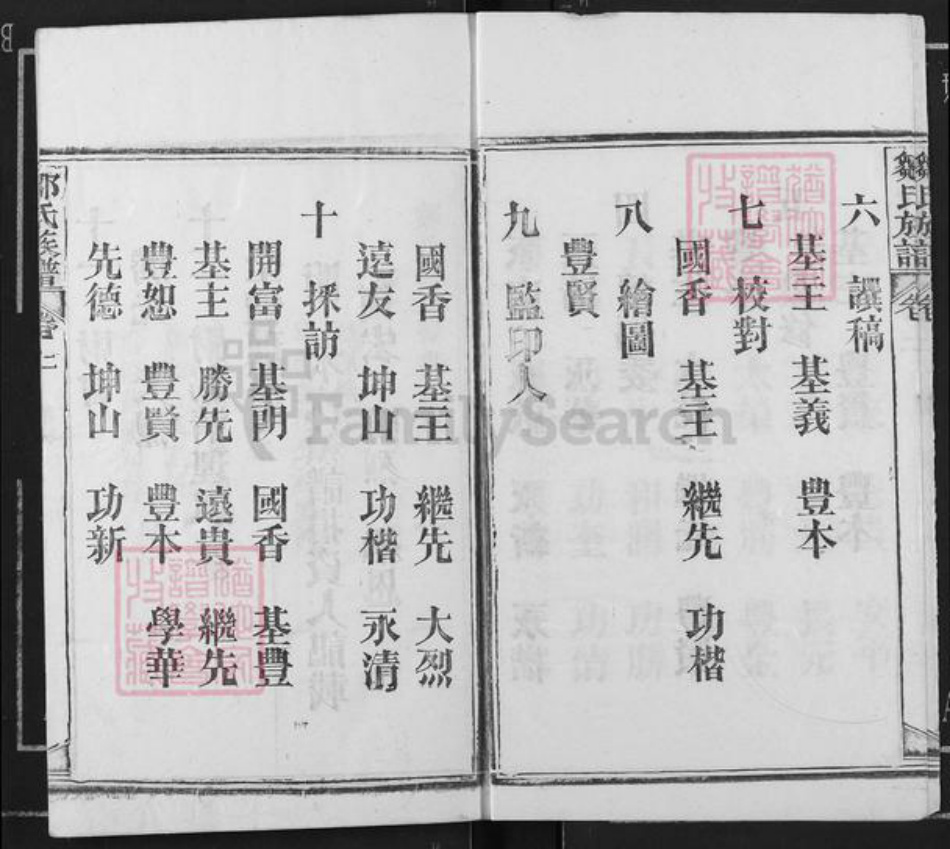 鄒氏族譜 卷
六 譔稿
基主 基義 豐本
七 校對
國香 基主 繼先 功楷
八 繪圖
豐賢
九 監印人
國香 基主 繼先 大烈
遠友 坤山 功楷 永清
十 採訪
開富 基明 國香 基豐
基主 勝先 遠貴 繼先
豐恕 豐賢 豐本 學華
先德 坤山 功新
鄒氏族譜 卷
FamilySearch